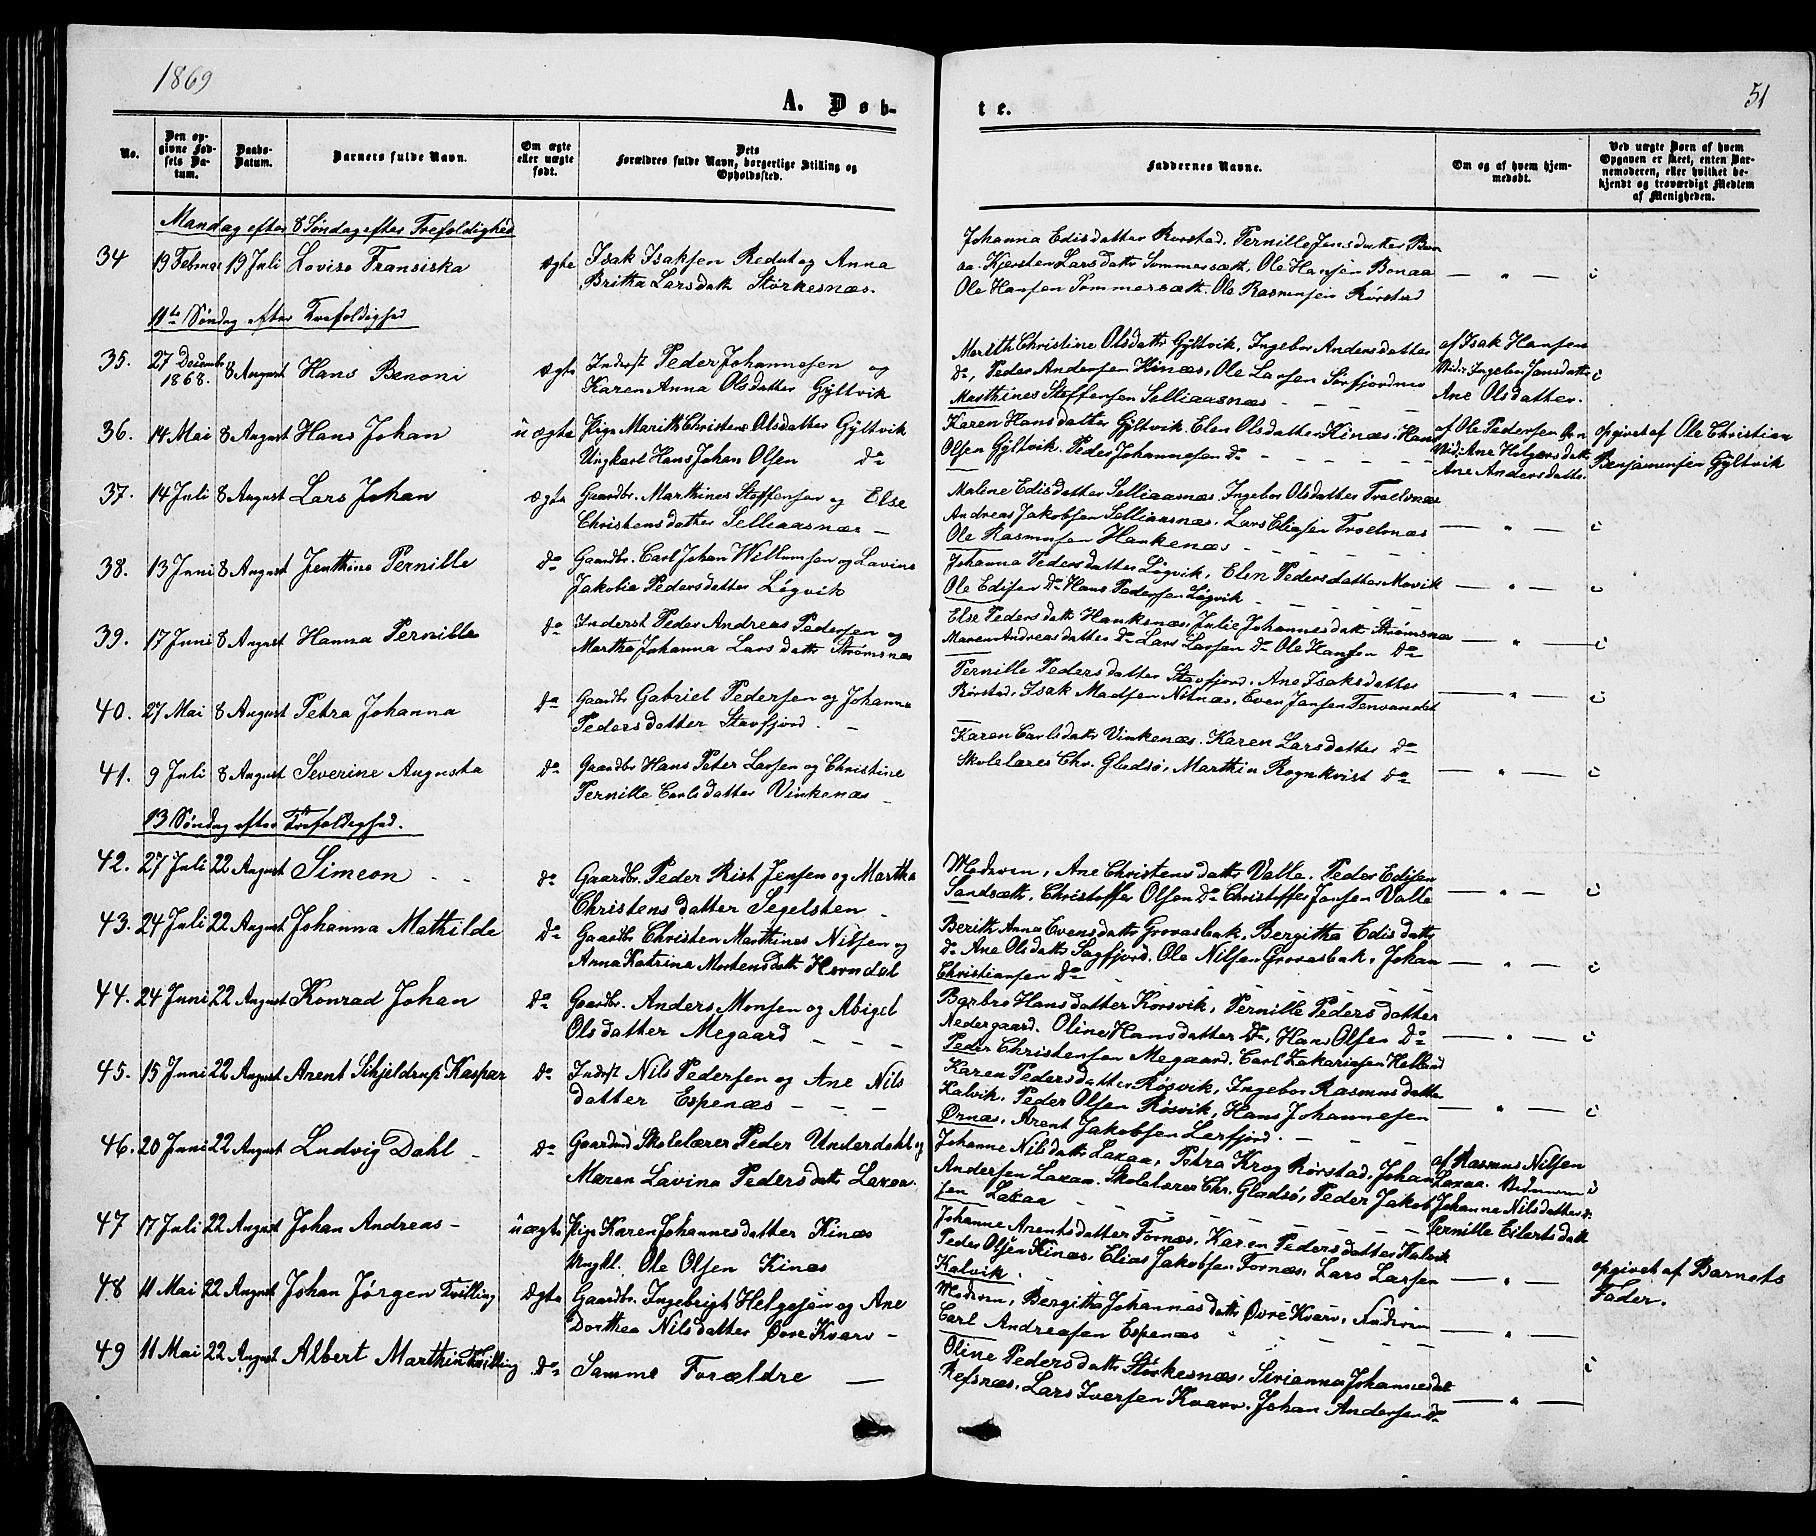 1869
51
A. Døb-
te.
No.
Den op-
givne Fød-
sels Da-
tum.
Daabs-
Datum.
Barnets fulde Navn.
Om ægte
eller uægte
født.
Dets
Forældres fulde Navn, borgerlige Stilling og
Opholdssted.
Faddernes Navne.
Om og af hvem hjem-
medøbt.
Ved uægte Børn af hvem
Opgaven er skeet, enten Bar-
nemoderen, eller hvilket be-
kjendt og troværdigt Medlem
af Menigheden.
Mandag efter 8 Søndag efter Trefoldighed
34 19 Februar 19 Juli Lovise Fransiska ægte Isak Isaksen Redut og Anna
Britha Larsdatt Størkesnæs.
Johanna Edisdatter Rørstad. Pernille Jensdatter Bon
aa. Kjersten Larsdattr Sommersæth. Ole Hansen Bonaa — " —
Ole Hansen Sommersæth. Ole Rasmusen Rørstad
11te Søndag efter Trefoldighed
35. 27 Decembr 1868. 8 August Hans Benoni ægte Inderst Peder Johannesen og
Karen Anna Olsdatter Gyltvik
Marith Christine Olsdattr Gyltvik, Ingebor Andersdatter
Do, Peder Andersen Kinæs, Ole Larsen Sørfjordmo
Marthines Steffensen Selliaasnæs - - -
af Isak Hansen
Vid: Ingebor Jonsdatter
Ane Olsdatter.
36. 14 Mai 8 August Hans Johan uægte Pige Marith Christens Olsdatter Gyltvik
Ungkarl Hans Johan Olsen do
Karen Hansdatter Gyltvik. Elen Olsdatter Kinæs. Hans
Olsen Gyltvik. Peder Johannesen do - - - -
af Ole Pedersen
Vid: Ane Holgersdatt
Ane Andersdatter
opgivet af Ole Christian
Benjaminsen Gyltvik
37. 14 Juli 8 August Lars Johan ægte Gaardbr. Marthines Steffensen og Else
Christensdatter Selliaasnæs —
Maline Edisdatter Selliaasnæs. Ingebor Olsdatter Troelsnæs
Andreas Jakobsen Selliaasnæs. Lars Eliasen Troelsnæs — " —
Ole Rasmusen Hankenæs - - - -
38. 13 Juni 8 August Jenthine Pernille do Gaardbr. Carl Johan Willumsen og Lavine
Jakobia Pedersdatter Løgvik
Johanna Pedersdatter Løgvik, Elen Pedersdatter Movik
Ole Edisen do Hans Pedersen Løgvik - - - - — " —
39. 17 Juni 8 August Hanna Pernille do Inderst Peder Andreas Pedersen og
Martha Johanna Larsdattr Strømsnæs
Else Pedersdatt Hanksnæs, Julie Johannesdatt Strømsnæs
Maren Andreasdatter do Lars Larsen do Ole Hansen do — " —
40. 27 Mai 8 August Petra Johanna do Gaardbr Gabriel Pedersen og Johanna
Pedersdatter Stavfjord. —
Pernille Pedersdatter Stavfjord, Ane Isaksdatter
Rørstad, Isak Madsen Nilnæs, Even Jansen Tenvandet — " —
41. 9 Juli 8 August Severine Augusta do Gaardbr Hans Peter Larsen og Christine
Pernille Carlsdatter Vinkenæs —
Karen Carlsdatr Vinkenæs. Karen Larsdatter do
Skolelærer Chr. Gladsø, Marthin Rognkvist do — " —
13 Søndag efter Trefoldighed.
42. 27 Juli 22 August Simeon - - do Gaardbr. Peder Rist Jensen og Martha
Christensdatter Segelsten -
Moderen, Ane Christensdattr Valle. Peder Edisen
Sandsæth, Christoffer Olsen do Christoffer Jansen Valle — " —
43. 24 Juli 22 August Johanna Mathilde do Gaardbr Christen Marthines Nilsen og
Anna Katrina Mortensdatt Horndal
Berith Anna Evensdattr Grovasbak, Bergitha Edisdattr
do Ane Olsdattr Sagfjord. Ole Nilsen Grovasbak, Johan — " —
Christiansen do
44. 24 Juni 22 August Konrad Johan do Gaardbr. Anders Monsen og Abigel
Olsdatter Megaard — — —
Barbro Hansdatter Korsvik, Pernille Pedersdatter
Nedergaard. Oline Hansdatter do, Hans Olsen do — " —
Peder Christensen Megaard. Carl Zakariasen Helland
45. 15 Juni 22 August Arent Schjeldrup Kaspar do Inderst Nils Pedersen og Ane Nils
datter Espenæs — — —
Karen Pedersdatter Røsvik, Ingebor Rasmusdatter
Kalvik, Peder Olsen Røsvik, Hans Johannesen — " —
Ørnæs, Arent Jakobsen Lerfjord. - -
46. 20 Juni 22 August Ludvig Dahl - do Gaardmd Skolelærer Peder Underdahl og
Maren Lavina Pedersdatt Laxaa.
Johanne Nilsdattr Laxaa, Petra Krog Rørstad, Johan
Andersen Laxaa. Skolelærer Chr. Gladsø, Peder Jakob
sen Laxaa - - - - -
af Rasmus Nilsen
Laxaa.
Johanna Nilsdatter do
Pernille Eilertsdatt
47 17 Juli 22 August Johan Andreas - uægte Pige Karen Johannesdatter Kinæs
Ungkl. Ole Olsen Kinæs
Johanne Arentsdatter Fornæs, Karen Pedersdatter Kalvik
Peder Olsen Kinæs, Elias Jakobsen Fornæs, Lars Larsen — " —
Kalvik.
opgivet af Barnets
Fader.
48 11 Mai 22 August Johan Jørgen Tvilling ægte Gaardbr. Ingebrigt Helgesen og Ane
Dorthea Nilsdatter Øvre Kvarv —
Moderen, Bergitha Johannesdattr Øvre Kvarv,
Carl Andreasen Espenæs — " —
49 11 Mai 22 August Albert Marthin Tvilling do Samme Forældre —
Oline Pedersdattr Størkesnæs, Sirianna Johannesdatt
Refsnæs, Lars Iversen Kvarv. Johan Andersen do — " —